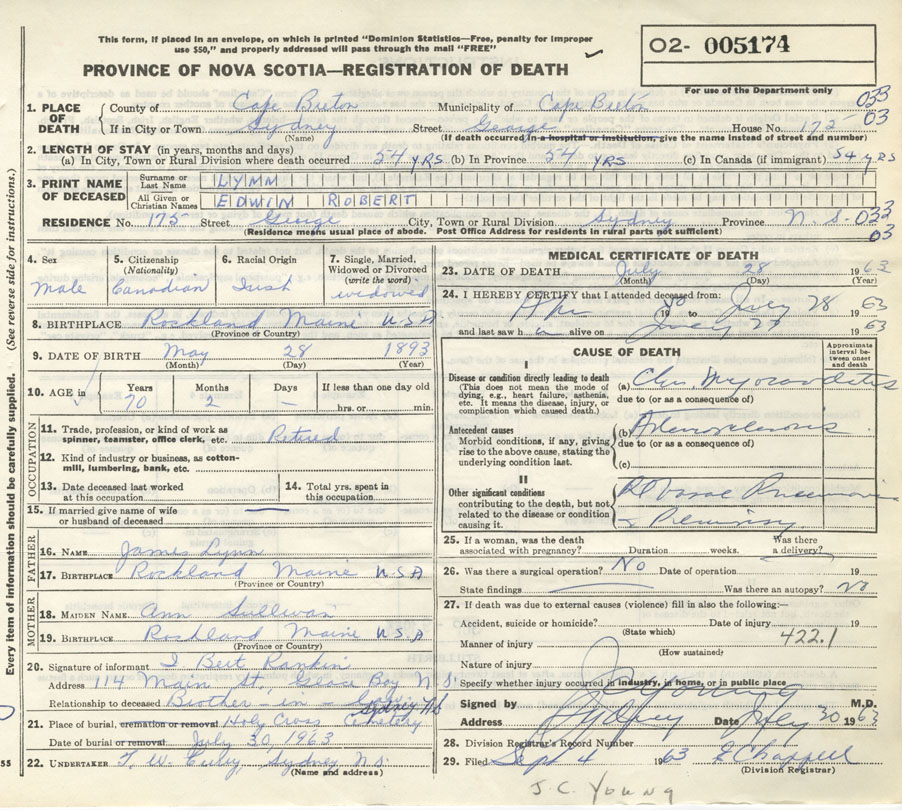 This form, if placed in an envelope, on which is printed "Dominion Statistics—Free, penalty for improper
use $50," and properly addressed will pass through the mail "FREE"
PROVINCE OF NOVA SCOTIA—REGISTRATION OF DEATH
02- 005174
For use of the Department only
033
03
1. PLACE OF DEATH
County of Cape Breton Municipality of Cape Breton
If in City or Town Sydney Street George House No. 175
(Name) (If death occurred in a hospital or institution, give the name instead of street and number)
2. LENGTH OF STAY (in years, months and days)
(a) In City, Town or Rural Division where death occurred 54 yrs (b) In Province 54 yrs (c) In Canada (if immigrant) 54 yrs
3. PRINT NAME OF DECEASED
Surname or Last Name LYNN
All Given or Christian Names EDWIN ROBERT
RESIDENCE No. 175 Street George City, Town or Rural Division Sydney Province N.S. 033
(Residence means usual place of abode. Post Office Address for residents in rural parts not sufficient) 03
4. Sex Male
5. Citizenship (Nationality) Canadian
6. Racial Origin Irish
7. Single, Married, Widowed or Divorced (write the word) widowed
8. BIRTHPLACE Rockland Maine USA
(Province or Country)
9. DATE OF BIRTH May 28 1893
(Month) (Day) (Year)
10. AGE in Years 70 Months 2 Days — If less than one day old
hrs. or min.
OCCUPATION
11. Trade, profession, or kind of work as
spinner, teamster, office clerk, etc. Retired
12. Kind of industry or business, as cotton-
mill, lumbering, bank, etc.
13. Date deceased last worked
at this occupation
14. Total yrs. spent in
this occupation
15. If married give name of wife
or husband of deceased —
FATHER
16. NAME James Lynn
17. BIRTHPLACE Rockland Maine USA
(Province or Country)
MOTHER
18. MAIDEN NAME Ann Sullivan
19. BIRTHPLACE Rockland Maine U.S.A
(Province or Country)
20. Signature of informant J Bert Rankin
Address 114 Main St, Glace Bay N.S.
Relationship to deceased Brother-in-Law
21. Place of burial, cremation or removal Holy Cross Cemetery Sydney NS
Date of burial or removal July 30, 1963
22. UNDERTAKER T. W. Curry, Sydney N.S.
(Name and address)
MEDICAL CERTIFICATE OF DEATH
23. DATE OF DEATH July 28 1963
(Month) (Day) (Year)
24. I HEREBY CERTIFY that I attended deceased from:
19 to July 28 1963
and last saw h alive on July 27 1963
CAUSE OF DEATH
Approximate interval between onset and death
I
Disease or condition directly leading to death
(This does not mean the mode of
dying, e.g., heart failure, asthenia,
etc. It means the disease, injury, or
complication which caused death.)
(a) Chr. Myocarditis
due to (or as a consequence of)
Antecedent causes
Morbid conditions, if any, giving
rise to the above cause, stating the
underlying condition last.
(b) Arteriosclerosis
due to (or as a consequence of)
(c)
II
Other significant conditions
contributing to the death, but not
related to the disease or condition
causing it.
Rt Basal Pneumonia
& Pleurisy
25. If a woman, was the death
associated with pregnancy? Duration weeks. Was there
a delivery?
26. Was there a surgical operation? No Date of operation 19
State findings Was there an autopsy? No
27. If death was due to external causes (violence) fill in also the following:—
Accident, suicide or homicide? Date of injury 19
(State which) 422.1
Manner of injury
(How sustained)
Nature of injury
Specify whether injury occurred in industry, in home, or in public place
Signed by J C Young M.D.
Address Sydney Date July 30 1963
28. Division Registrar's Record Number
29. Filed Sept 4 1963 E Chappell
(Division Registrar)
J.C. Young
Every item of information should be carefully supplied. (See reverse side for instructions.)
55